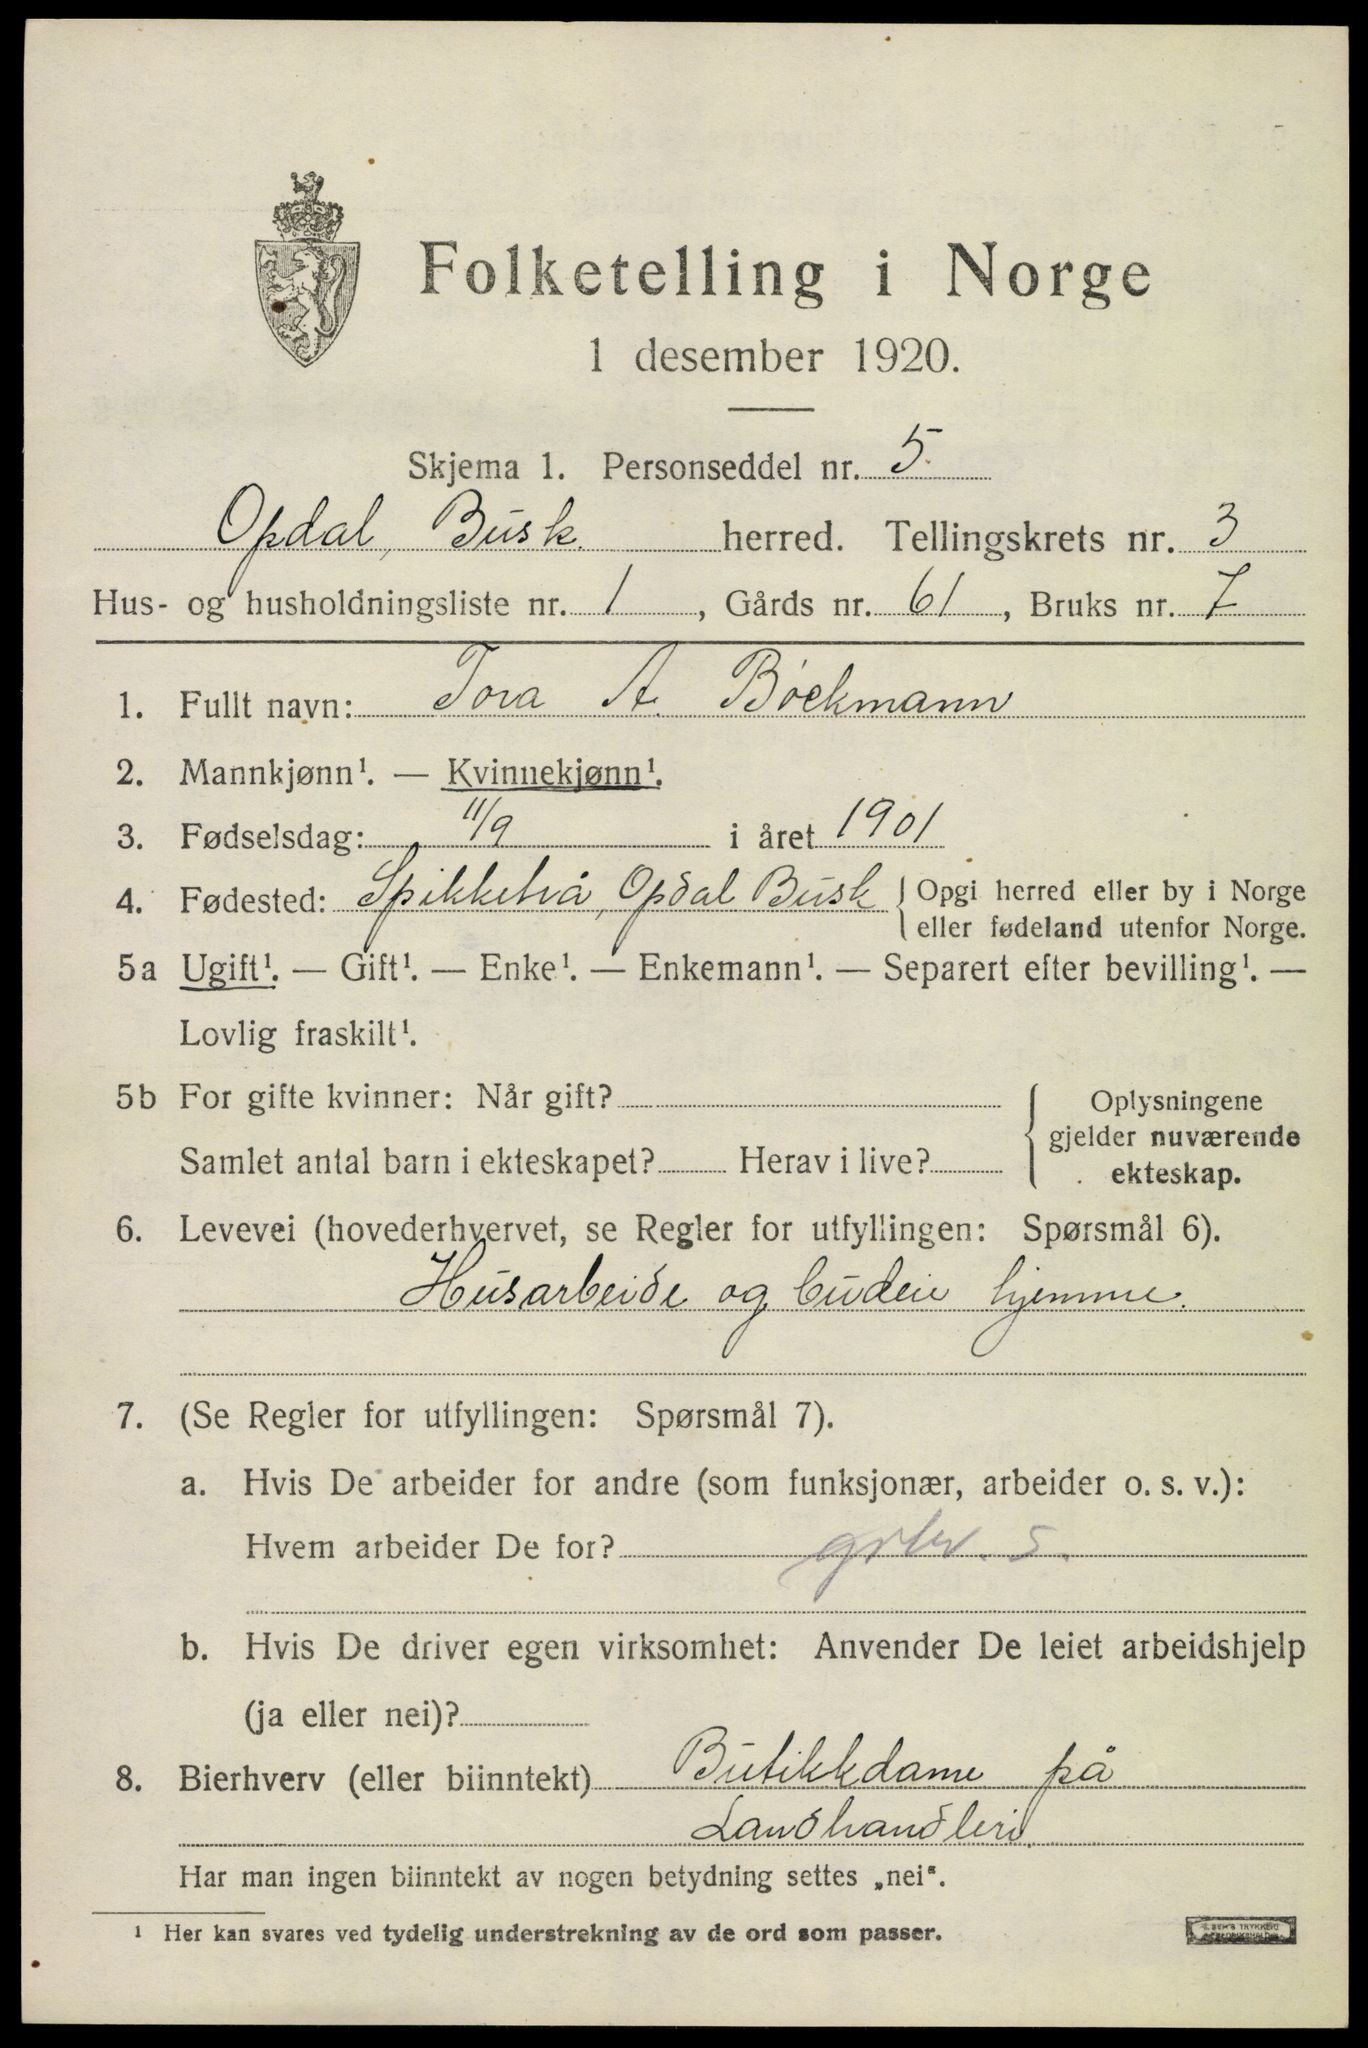 Folketelling i Norge
1 desember 1920.
Skjema 1. Personseddel nr. 5.
Opdal, Busk. herred. Tellingskrets nr. 3
Hus- og husholdningsliste nr. 1, Gårds nr. 61, Bruks nr. 7
1. Fullt navn: Tora A. Bøckmann
2. Mannkjønn¹. — Kvinnekjønn¹.
3. Fødselsdag: 11/9 i året 1901
4. Fødested: Opdal Busk { Opgi herred eller by i Norge
eller fødeland utenfor Norge.
5a Ugift¹. — Gift¹. — Enke¹. — Enkemann¹. — Separert efter bevilling¹. —
Lovlig fraskilt¹.
5b For gifte kvinner: Når gift?
Samlet antal barn i ekteskapet? Herav i live?
{ Oplysningene
gjelder nuværende
ekteskap.
6. Levevei (hovederhvervet, se Regler for utfyllingen: Spørsmål 6).
Husarbeide og budeie hjemme.
7. (Se Regler for utfyllingen: Spørsmål 7).
a. Hvis De arbeider for andre (som funksjonær, arbeider o. s. v.):
Hvem arbeider De for?
b. Hvis De driver egen virksomhet: Anvender De leiet arbeidshjelp
(ja eller nei)?
8. Bierhverv (eller biinntekt) Butikkdame på
Landhandleri.
Har man ingen biinntekt av nogen betydning settes „nei“.
¹ Her kan svares ved tydelig understrekning av de ord som passer.